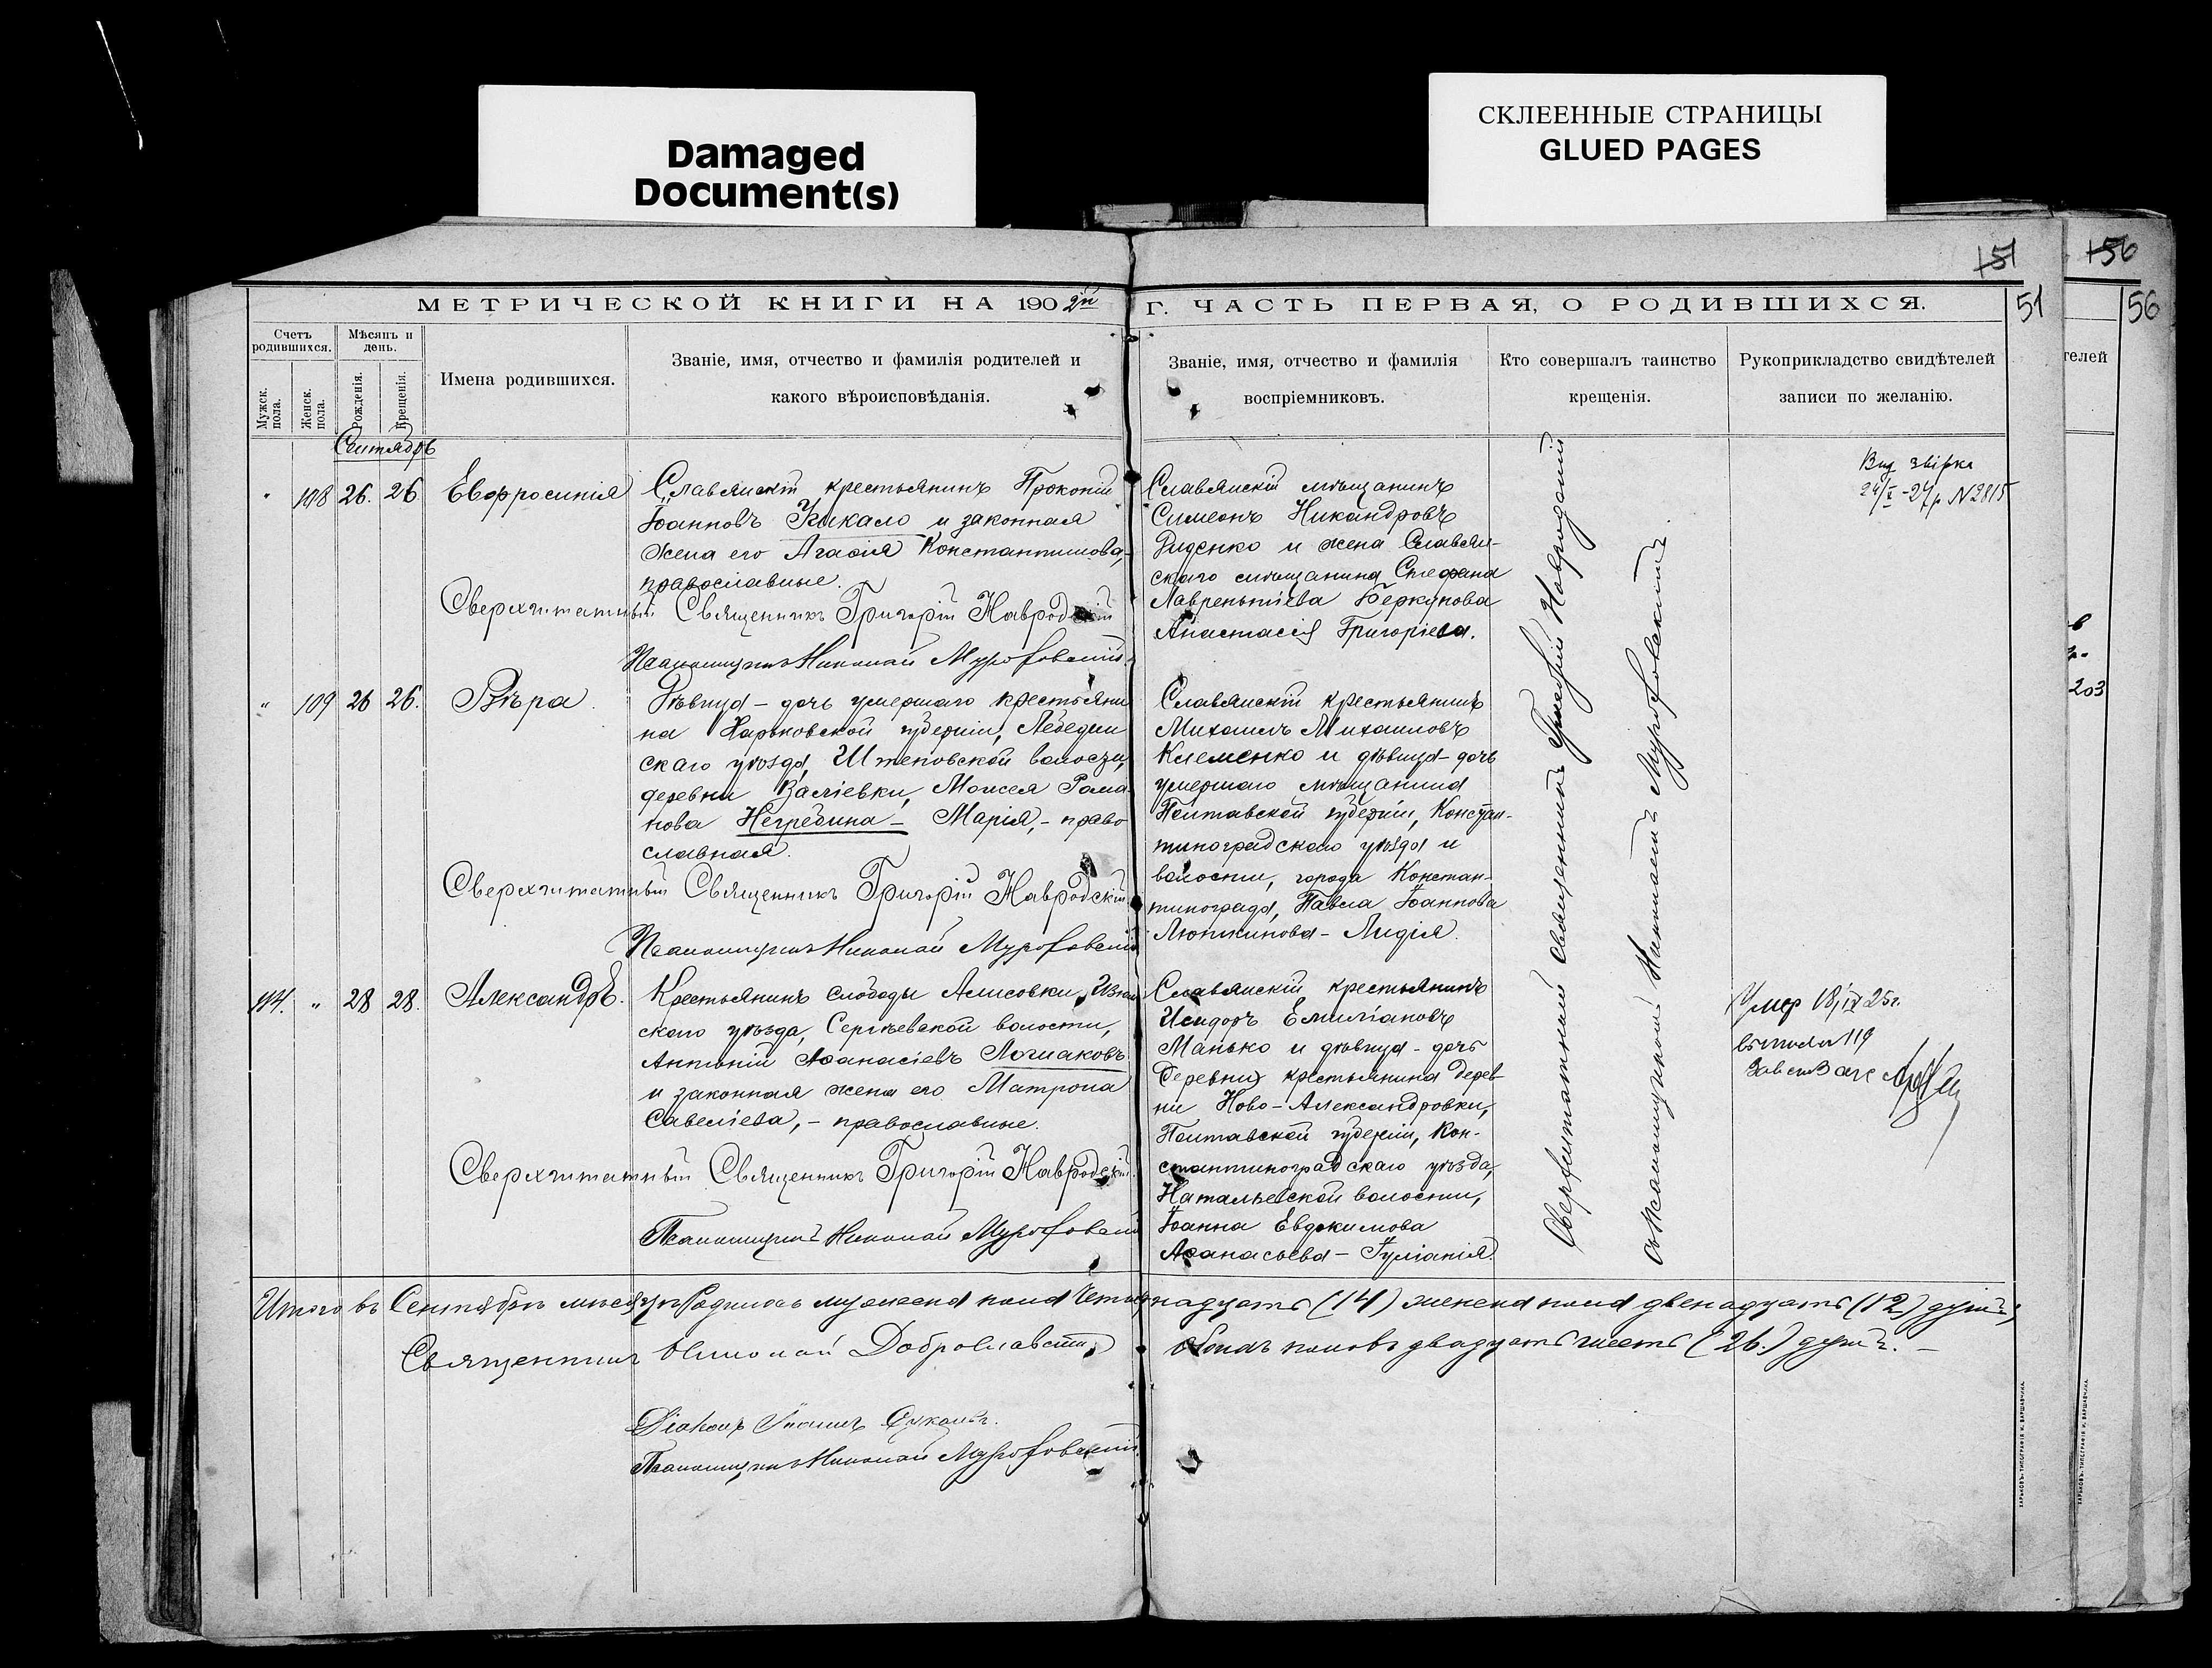 Damaged
Document(s)
СКЛЕЕННЫЕ СТРАНИЦЫ
GLUED PAGES
151
156
МЕТРИЧЕСКОЙ КНИГИ НА 1902й
Г. ЧАСТЬ ПЕРВАЯ, О РОДИВШИХСЯ.
51
56
Счетъ родившихся.
Мужск. пола.
Женск. пола.
Мѣсяцъ и день.
Рожденія.
Крещенія.
Имена родившихся.
Званіе, имя, отчество и фамилія родителей и
какого вѣроисповѣданія.
Званіе, имя, отчество и фамилія
воспріемниковъ.
Кто совершалъ таинство
крещенія.
Рукоприкладство свидѣтелей
записи по желанію.
телей
Сентябрь
" 108 26. 26 Евфросинія
Славянскій крестьянинъ Прокопій
Іоанновъ Кикало и законная
жена его Агафія Константинова,
православные.
Сверхштатный Священникъ Григорій Навродскій
Псаломщикъ Николай
Славянскій мѣщанинъ
Симеонъ Никандровъ
Диденко и жена Славян-
скаго мѣщанина Стефана
Лаврентіева Беркунова
Анастасія Григоріева.
Вид звірка
24/X-27р. N2815
" 109 26 26. Вѣра.
Дѣвица - дочь умершаго крестьяни
на Харьковской губерніи, Лебедин
скаго уѣзда, Штеповской волости,
деревни Валіевки, Моисея Рома-
нова Негребина - Марія, - право
славная.
Сверхштатный Священникъ Григорій Навродскій
Псаломщикъ Николай
Славянскій крестьянинъ
Михаилъ Михаиловъ
Клеменко и дѣвица - дочь
умершаго мѣщанина
Полтавской губерніи, Констан-
тиноградскаго уѣзда и
волости, города Констан-
тинограда, Павла Іоаннова
Лютикова - Лидія.
114. " 28 28. Александръ.
Крестьянинъ слободы Алисовки, Изюм
скаго уѣзда, Сергѣевской волости,
Антоній Аѳанасіевъ Логмаковъ
и законная жена его Матрона
Савеліева, - православные.
Сверхштатный Священникъ Григорій Навродскій.
Псаломщикъ Николай
Славянскій крестьянинъ
Исидоръ Емиліановъ
Манько и дѣвица - дочь
деревни крестьянина дерев-
ни Ново-Александровки,
Полтавской губерніи, Кон-
стантиноградскаго уѣзда,
Натальевской волости,
Іоанна Евдокимова
Аѳанасьева - Іуліанія.
Умер 18/IX 25г.
119
Сверхштатный Священникъ Григорій Навродскій
съ Псаломщикомъ Николаемъ
203
Итого въ Сентябрѣ мѣсяцѣ родилось мужеска пола четырнадцать (14) женска пола двенадцать (12) душъ,
обоихъ половъ двадцать шесть (26.) душъ. -
Священникъ Николай Доброславскій
Діаконъ Іоаннъ
Псаломщикъ Николай
ХАРЬКОВЪ. ТИПОГРАФІЯ И. ВАРШАВЧИКА.
ХАРЬКОВЪ. ТИПОГРАФІЯ И. ВАРШАВЧИКА.